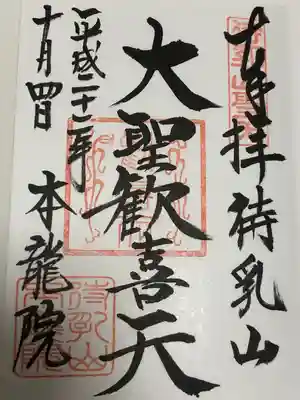 奉拝 待乳山
大聖歓喜天
本龍院
平成二十二年
十月四日